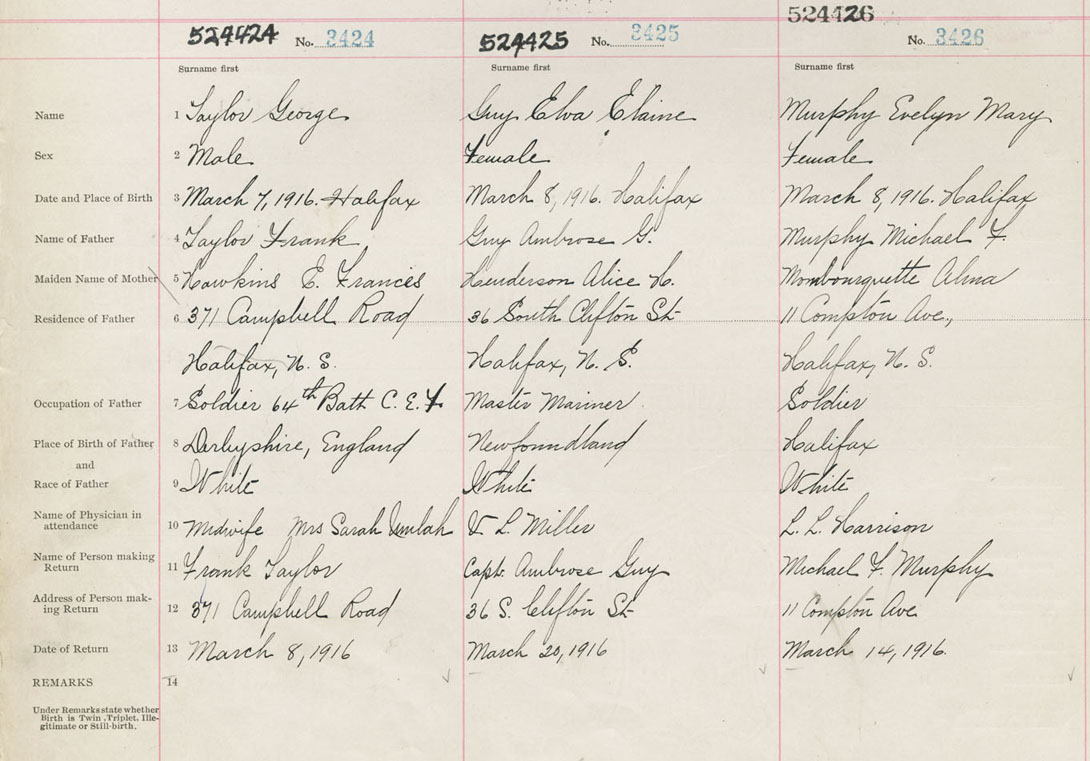 524424 No. 3424 524425 No. 3425 524426 No. 3426
Surname first Surname first Surname first
Name 1 Taylor George Guy Elva Elaine Murphy Evelyn Mary
Sex 2 Male Female Female
Date and Place of Birth 3 March 7, 1916. Halifax March 8, 1916. Halifax March 8, 1916. Halifax
Name of Father 4 Taylor Frank Guy Ambrose G. Murphy Michael F.
Maiden Name of Mother 5 Hawkins E. Frances Henderson Alice H. Mombourquette Alma
Residence of Father 6 371 Campbell Road 36 South Clifton St 11 Compton Ave.,
Halifax, N. S. Halifax, N. S. Halifax, N. S.
Occupation of Father 7 Soldier 64th Batt C. E. F. Master Mariner Soldier
Place of Birth of Father 8 Derbyshire, England Newfoundland Halifax
and
Race of Father 9 White White White
Name of Physician in attendance 10 Midwife Mrs Sarah V L. Miller L. L. Harrison
Name of Person making Return 11 Frank Taylor Capt. Ambrose Guy Michael F. Murphy
Address of Person mak-ing Return 12 371 Campbell Road 36 S. Clifton St 11 Compton Ave
Date of Return 13 March 8, 1916 March 20, 1916 March 14, 1916.
REMARKS 14
Under Remarks state whether
Birth is Twin, Triplet, Ille-
gitimate or Still-birth.